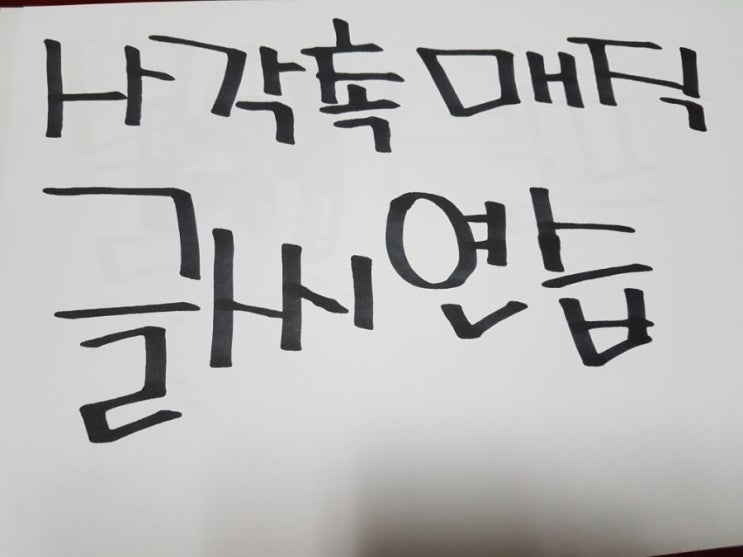 사각촉 매직
글씨연습